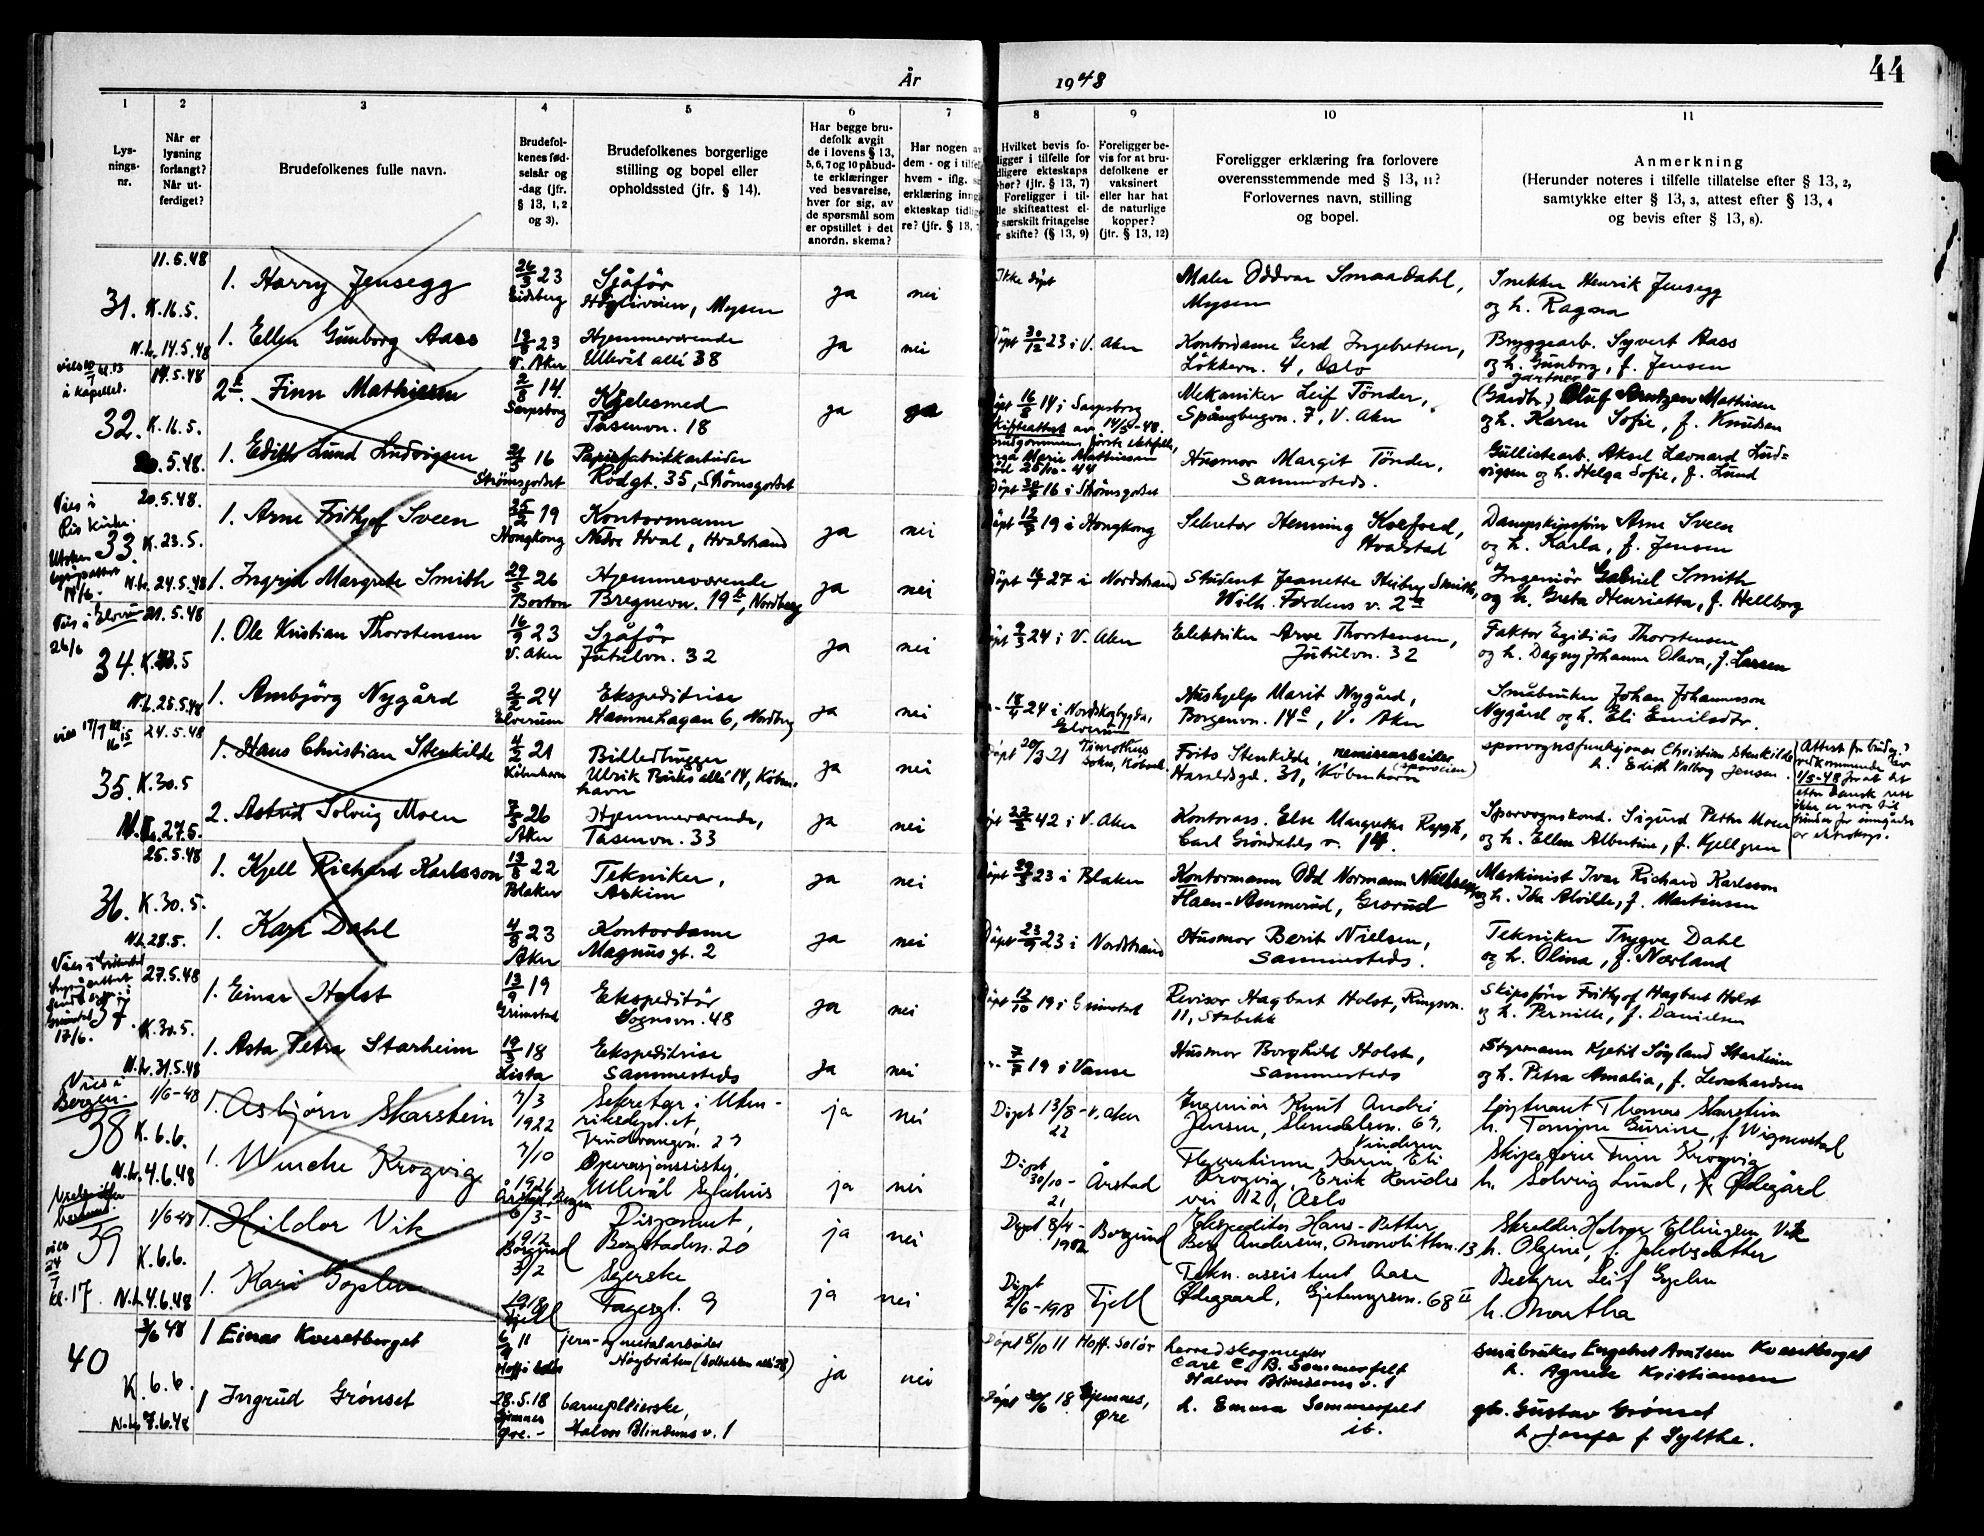 44
År 1948
1 2 3 4 5 6 7 8 9 10 11
Lys-
nings-
nr.
Når er
lysning
forlangt?
Når ut-
ferdiget?
Brudefolkenes fulle navn.
Brudefol-
kenes fød-
selsår og
-dag (jfr.
§ 13, 1, 2
og 3).
Brudefolkenes borgerlige
stilling og bopel eller
opholdssted (jfr. § 14).
Har begge bru-
defolk avgit
de i lovens § 13,
5, 6, 7 og 10 påbud-
te erklæringer
ved besvarelse,
hver for sig, av
de spørsmål som
er opstillet i det
anordn. skema?
Har nogen
dem - og i
hvem - iflg.
erklæring
ekteskap
re? (jfr. § 13,
Hvilket bevis fo-
ligger i tilfelle for
ekteskaps
(jfr. § 13, 7)
Foreligger i til-
skifteattest el-
særskilt fritagelse
skifte? (§ 13, 9)
Foreligger be-
vis for at bru-
defolkene er
vaksinert
eller har hat
de naturlige
kopper?
(jfr. § 13, 12)
Foreligger erklæring fra forlovere
overensstemmende med § 13, 11?
Forlovernes navn, stilling
og bopel.
Anmerkning
(Herunder noteres i tilfelle tillatelse efter § 13, 2,
samtykke efter § 13, 3, attest efter § 13, 4
og bevis efter § 13, 8).
31. K. 16.5.
1. Harry Jensegg
26/3 23
Eidsberg
Sjåför
Högliveien, Mysen
ja nei
Ikke döpt
Maler Oddvar Smaadahl,
Mysen
Snekker Henrik Jensegg
og h. Ragna
N.L. 14.5.48
1. Ellen Gunborg Aass
V. Aker
Hjemmeværende
Ullevål allé 38
ja nei
Döpt 30/12 23 i V. Aker
Kontordame Gerd Ingebretsen,
Løkkevn. 4, Oslo
Bryggearb. Syvert Aass
og h. Gunborg, f. Jensen
i kapellet.
14.5.48
32. K. 16.5.
Finn Mathisen
2/8 14.
Sarpsborg
Kjelesmed
Tåsenvn. 18
ja
Döpt 16/8 14 i Sarpsborg
Mekaniker Leif Tönder,
Spångbergvn. 7, V. Aker
gartner
Oluf Arntzen Mathisen
og h. Karen Sofie, f. Knudsen
20.5.48.
1. Edith Lund Ludvigsen
16
Strømsgodset
Papirfabrikkarbeider
Rödgt. 35, Strømsgodset
Husmor Margit Tönder,
Sammesteds.
Gullistearb. Aksel Leonard Lud-
vigsen og h. Helga Sofie, f. Lund
Vies i
Ris kirke.
20.5.48
33. K. 23.5.
1. Arne Frithjof Sveen
25/2 19
Hongkong
Kontormann
Nedre Hval, Hvalstrand
ja nei
Döpt 12/5 19 i Hongkong
Sekretær Henning Koefoed,
Hvalstad
Dampskipsfører Arne Sveen
og h. Karla, f. Jensen
14/6.
N.L. 24.5.48
1. Ingrid Margrete Smith
29/5 26
Boston
Hjemmeværende
Bregnevn. 19, Nordberg
ja nei
27 i Nordstrand
Student Jeanette Heiberg Smith,
Wilh. Færdens v. 2
Ingeniör Gabriel Smith
og h. Greta Henrietta, f. Hellborg
Vies i Elverum
26/6
21.5.48
34.
1. Ole Kristian Thorstensen
16/9 23
V. Aker
Sjåför
Jutulvn. 32
ja nei
Döpt 9/3 24 i V. Aker
Elektriker Arve Thorstensen,
Jutulvn. 32
Faktor Egidius Thorstensen
og h. Dagny Johanne Olava, f. Larsen
N.L. 25.5.48
1. Ambjörg Nygård
2/2 24
Elverum
Ekspeditrise
Hammehagan 6, Nordberg
ja nei
18/4 24 i Nordskogbygda,
Elverum
Hushjelp Marit Nygård,
Borgenvn. 14, V. Aker
Småbruker Johan Johannesson
Nygård og h. Eli Emilsdtr.
vies 17/7
24.5.48
35. K. 30.5
1. Hans Christian Stenkilde
4/2 21
København
Billedhugger
Ulrik Birks allé 14, Køben-
havn
ja nei
Döpt 20/3 21 Timotheus
Sokn, Köbenh.
Frits Stenkilde, remisearbeider
(sporveien)
Haraldsgd. 31, København
sporvognsfunksjonær Christian Stenkilde
h. Edith Valborg Jensen.
1/5-48
N.L. 27.5.
2. Astrid Solveig Moen
7/5 26
Aker
Hjemmeværende,
Tåsenvn. 33
ja nei
42 i V. Aker
Kontorass. Else Margrethe
Carl Gröndahls v. 14.
Sporvognskond. Sigurd Petter Moen
og h. Ellen Albertine, f. Kjellgren
25.5.48
36. K. 30.5.
1. Kjell Richard Karlsson
13/8 22
Blaker
Tekniker,
Askim
ja nei
Döpt 23 i Blaker
Kontormann Odd Normann Nielsen
Flaen-Ammerud, Grorud
Maskinist Ivar Richard Karlsson
og h. Ida Alvilde, f. Martinsen
N.L. 28.5.
1. Kari Dahl
4/8 23
Aker
Kontordame
Magnus gt. 2
ja nei
Döpt 23/9 23 i Nordstrand
Husmor Berit Nielsen,
Sammesteds.
Tekniker Trygve Dahl
og h. Olina, f. Nærland
27.5.48
37. K. 30.5.
17/6.
1. Einar Holst
13/9 19
Grimstad
Ekspeditör
Sognsvn. 48
ja nei
Döpt 12/10 19 i Grimstad
Revisor Hagbart Holst, Ringvn.
11, Stabekk
Skipsfører Frithjof Hagbart Holst
og h. Pernille, f. Danielsen
N.L. 31.5.48
1. Asta Petra Starheim
19/3 18
Lista
Ekspeditrise
Sammesteds
ja nei
19 i Vanse
Husmor Borghild Holst,
Sammesteds
Styrmann Kjetil Sögland Starheim
og h. Petra Amalia, f. Leonhardsen
Vies i
Bergen.
1/6-48
38 K. 6.6.
1. Asbjörn Skarstein
7/3
1922
Sekretær i Uten-
riksdept.et,
Trudvangvn. 27
ja nei
Döpt 13/8-22
V. Aker
Ingeniør Knut André
Jensen, Slemdalsvn. 67,
Vinderen
Löytnant Thomas Skarstein
h. Tomine Gurine, f. Wignestad
N.L. 4.6.48
1. Wenche Krogvig
7/10
1926
Årstad, Bergen
Operasjonssöster,
Ullevål Sykehus
ja nei
Döpt
30/10-
Årstad
Krogvig, Erik
vei 12, Oslo
Skipsfører Finn Krogvig
h. Solveig Lund, f. Ødegård
1/6-48
39 K. 6.6.
1. Hildor Vik
6/3-
1912
Borgund
Disponent,
Borgstadvn. 20
ja nei
Döpt 8/4-
1912
Borgund
Ekspeditør Hans-Petter
Berg Andersen, Monolittvn. 13
Skredder Halvor Ellingsen Vik
h. Olgine, f. Jakobsdatter
vies
24/7
kl. 17.
N.L. 4.6.48
1. Kari Gjeslen
3/2
1918
Fjell
Syerske
Fagergt. 9
ja nei
Döpt
2/6-1918
Fjell
Tekn. assistent Aase
Ødegaard, Gjetemyrsvn. 68 II
Bestyrer Leif
h. Martha
3/6 48
40
K. 6.6.
1 Einar Kvesetberget
6/9 11
Hoff i Solör
jern- og metalarbeider
Høgbråten
ja nei
Döpt 8/10 11 Hoff. Solör
herredskogmester
Carl C. B. Sommerfelt
Halvor Blinderns v. 1
småbruker Engebret Arntsen Kvesetberget
h. Agnete Kristiansen
N.L. 7.6.48
1 Ingrid Grönset
28.5.18
Gjemnes
Öre.-
barnepleierske,
Halvor Blinderns v. 1
Döpt 30/6 18. Gjemnes,
Øre
h. Emma Sommerfelt
ib.
gbr. Gustav Grönset
h. Josefa f. Sylthe.